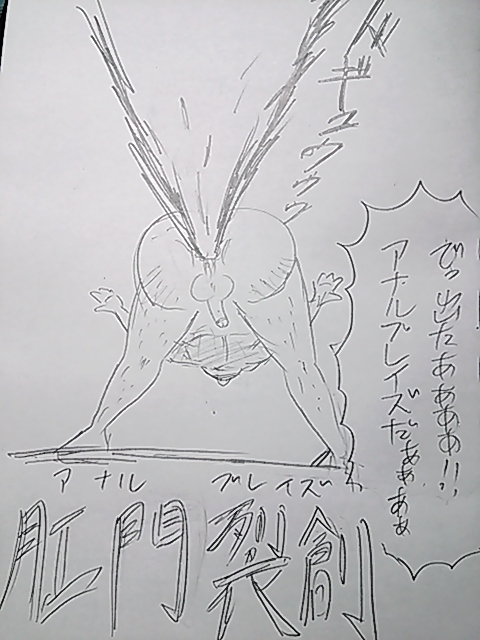 ドギュウウウ
でっ出たあぁぁぁ!!
アナルブレイズだぁぁぁぁ
アナル ブレイズ
肛門裂創